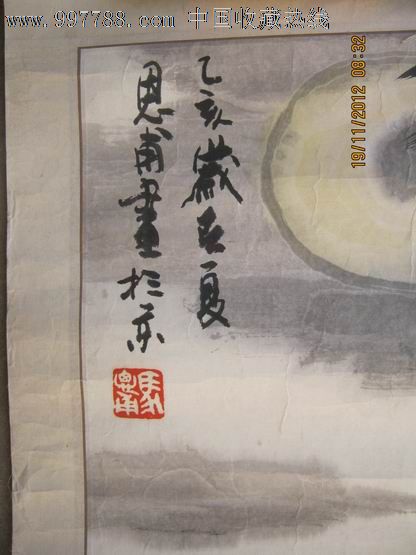 www.997788.com 中国收藏热线
19/11/2012 08:32
乙亥歲夏
恩甫畫於京